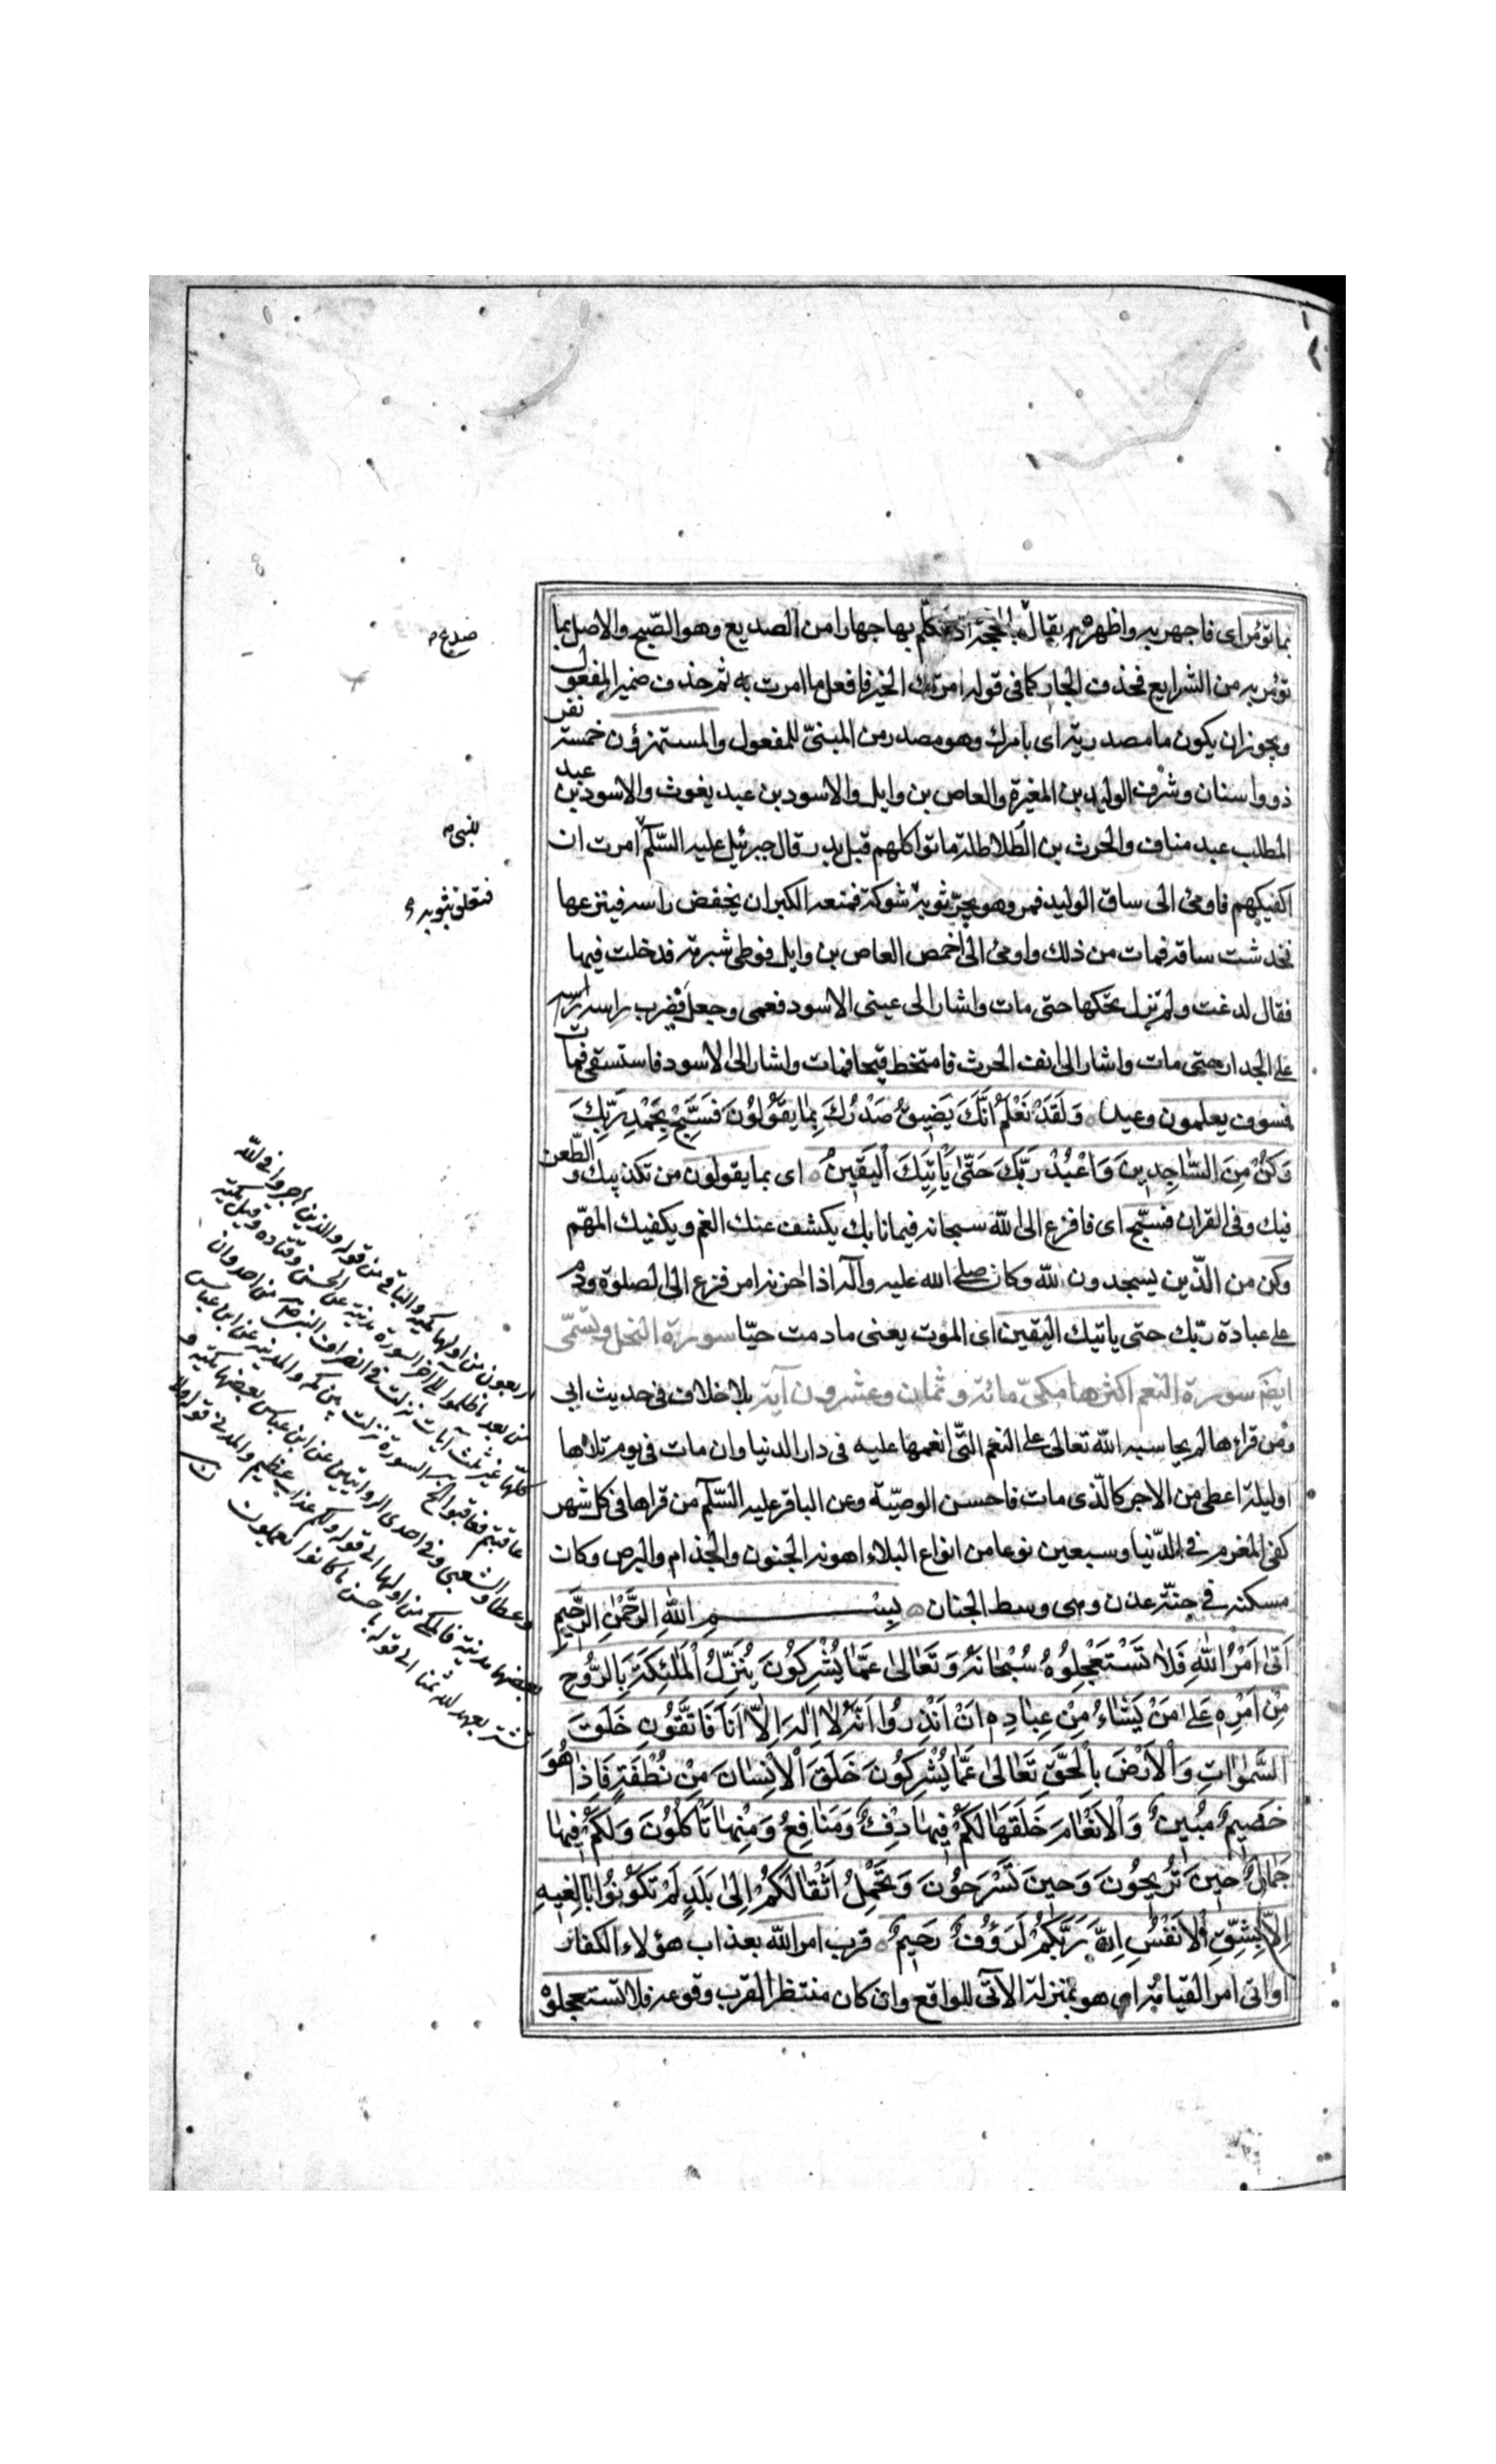 بما تؤمر اى فاجهر به واظهره يقال بالحجة اذا تكلم بها جهارا من الصديع وهو الصّبح والاصل بما
تؤمر به من الشرايع فحذف الجار كما فى قوله امرتك الخير فافعل ما امرت به ثم حذف ضمير المفعول
ويجوز ان يكون ما مصدرية اى بامرك وهو مصدر من المبنىّ للمفعول والمستهزؤن خمسة نفر
ذووا سنان وشرف الوليد بن المغيرة والعاص بن وايل والاسود بن عبد يغوث والاسود بن عبد
المطلب عبد مناف والحرث بن الطلاطلة ماتوا كلهم قبل بدر قال جبرئيل عليه السّلم امرت ان
اكفيكهم فاومئ الى ساق الوليد فمر وهو يجرّ ثوبه شوكة فمنعه الكبر ان يخفض راسه فينزعها
فخدشت ساقه فمات من ذلك واومئ الى اخمص العاص بن وايل فوطى شبرقة فدخلت فيها
فقال لدغت ولم تزل يحكها حتى مات واشار الى عينى الاسود فعمى وجعل فيضرب براسه راسه
على الجدار حتى مات واشار الى انف الحرث فامتخط قيحا فمات واشار الى الاسود فاستسقى فمات
فسوف يعلمون وعيد وَلَقَدْ نَعْلَمُ اَنَّكَ يَضِيقُ صَدْرُكَ بِمٰا يَقُولُونَ فَسَبِّحْ بِحَمْدِ رَبِّكَ
وَكُنْ مِنَ السّٰاجِدِينَ وَاعْبُدْ رَبَّكَ حَتّٰى يَأْتِيَكَ الْيَقِينُ اى بما يقولون من تكذيبك والطّعن
فيك وفى القران فسبّح اى فافزع الى الله سبحانه فيما نابك يكشف عنك الغم ويكفيك المهّم
وكن من الذّين يسجدون لله وكان صلى الله عليه وآله اذا احزنه امر فزع الى الصلوة ودم
على عبادة ربّك حتى ياتيك اليقين اى الموت يعنى ما دمت حيّا سورة النحل وتسمّى
ايضا سورة النعم اكثرها مكىّ مائة وثمان وعشرون آية بلا خلاف فى حديث ابى
ومن قراءها لم يحاسبه الله تعالى على النعم التّى انعمها عليه فى دار الدنيا وان مات فى يوم تلاها
او ليلة اعطى من الاجر كالّذى مات فاحسن الوصيّة وعن الباقر عليه السّلم من قراها فى كل شهر
كفى المغرم فى الدّنيا وسبعين نوعا من انواع البلاء اهونه الجنون والجذام والبرص وكان
مسكنه فى جنّة عدن وهى وسط الجنان بِسْمِ اللهِ الرَّحْمٰنِ الرَّحِيمِ
اَتٰى اَمْرُ اللهِ فَلاٰ تَسْتَعْجِلُوهُ سُبْحٰانَهُ وَتَعٰالىٰ عَمّٰا يُشْرِكُونَ يُنَزِّلُ الْمَلٰئِكَةَ بِالرُّوحِ
مِنْ اَمْرِهِ عَلىٰ مَنْ يَشٰاءُ مِنْ عِبٰادِهِ اَنْ اَنْذِرُوا اَنَّهُ لاٰ اِلٰهَ اِلاّٰ اَنَا فَاتَّقُونِ خَلَقَ
السَّمٰوٰاتِ وَالْاَرْضَ بِالْحَقِّ تَعٰالىٰ عَمّٰا يُشْرِكُونَ خَلَقَ الْاِنْسٰانَ مِنْ نُطْفَةٍ فَاِذٰا هُوَ
خَصِيمٌ مُبِينٌ وَالْاَنْعٰامَ خَلَقَهٰا لَكُمْ فِيهٰا دِفْءٌ وَمَنٰافِعُ وَمِنْهٰا تَأْكُلُونَ وَلَكُمْ فِيهٰا
جَمٰالٌ حِينَ تُرِيحُونَ وَحِينَ تَسْرَحُونَ وَتَحْمِلُ اَثْقٰالَكُمْ اِلىٰ بَلَدٍ لَمْ تَكُونُوا بٰالِغِيهِ
اِلاّٰ بِشِقِّ الْاَنْفُسِ اِنَّ رَبَّكُمْ لَرَؤُفٌ رَحِيمٌ قرب امر الله بعذاب هؤلاء الكفار
او اتى امر القيامة اى هو بمنزلة الآتى الواقع وان كان منتظرا لقرب وقوعه فلا تستعجلوه
صدع
للنبى
فتعلق بثوبه
اربعون من اولها مكية والباقى من قوله والذين هاجروا فى الله
من بعد ما ظلموا الى آخر السورة مدنية عن الحسن وقتادة وقيل مكية
كلها غير ثلث آيات نزلت فى انصراف النبى من احد وان
عاقبتم فعاقبوا الخ السورة نزلت بين مكة والمدينة عن ابن عباس
وعطا والشعبى وفى احدى الروايتين عن ابن عباس بعضها مكية و
بعضها مدنية فالمكى من اولها الى قوله ولكم عذاب عظيم والمدنى قوله ولا
تشتروا بعهد الله ثمنا الى قوله باحسن ما كانوا يعملون